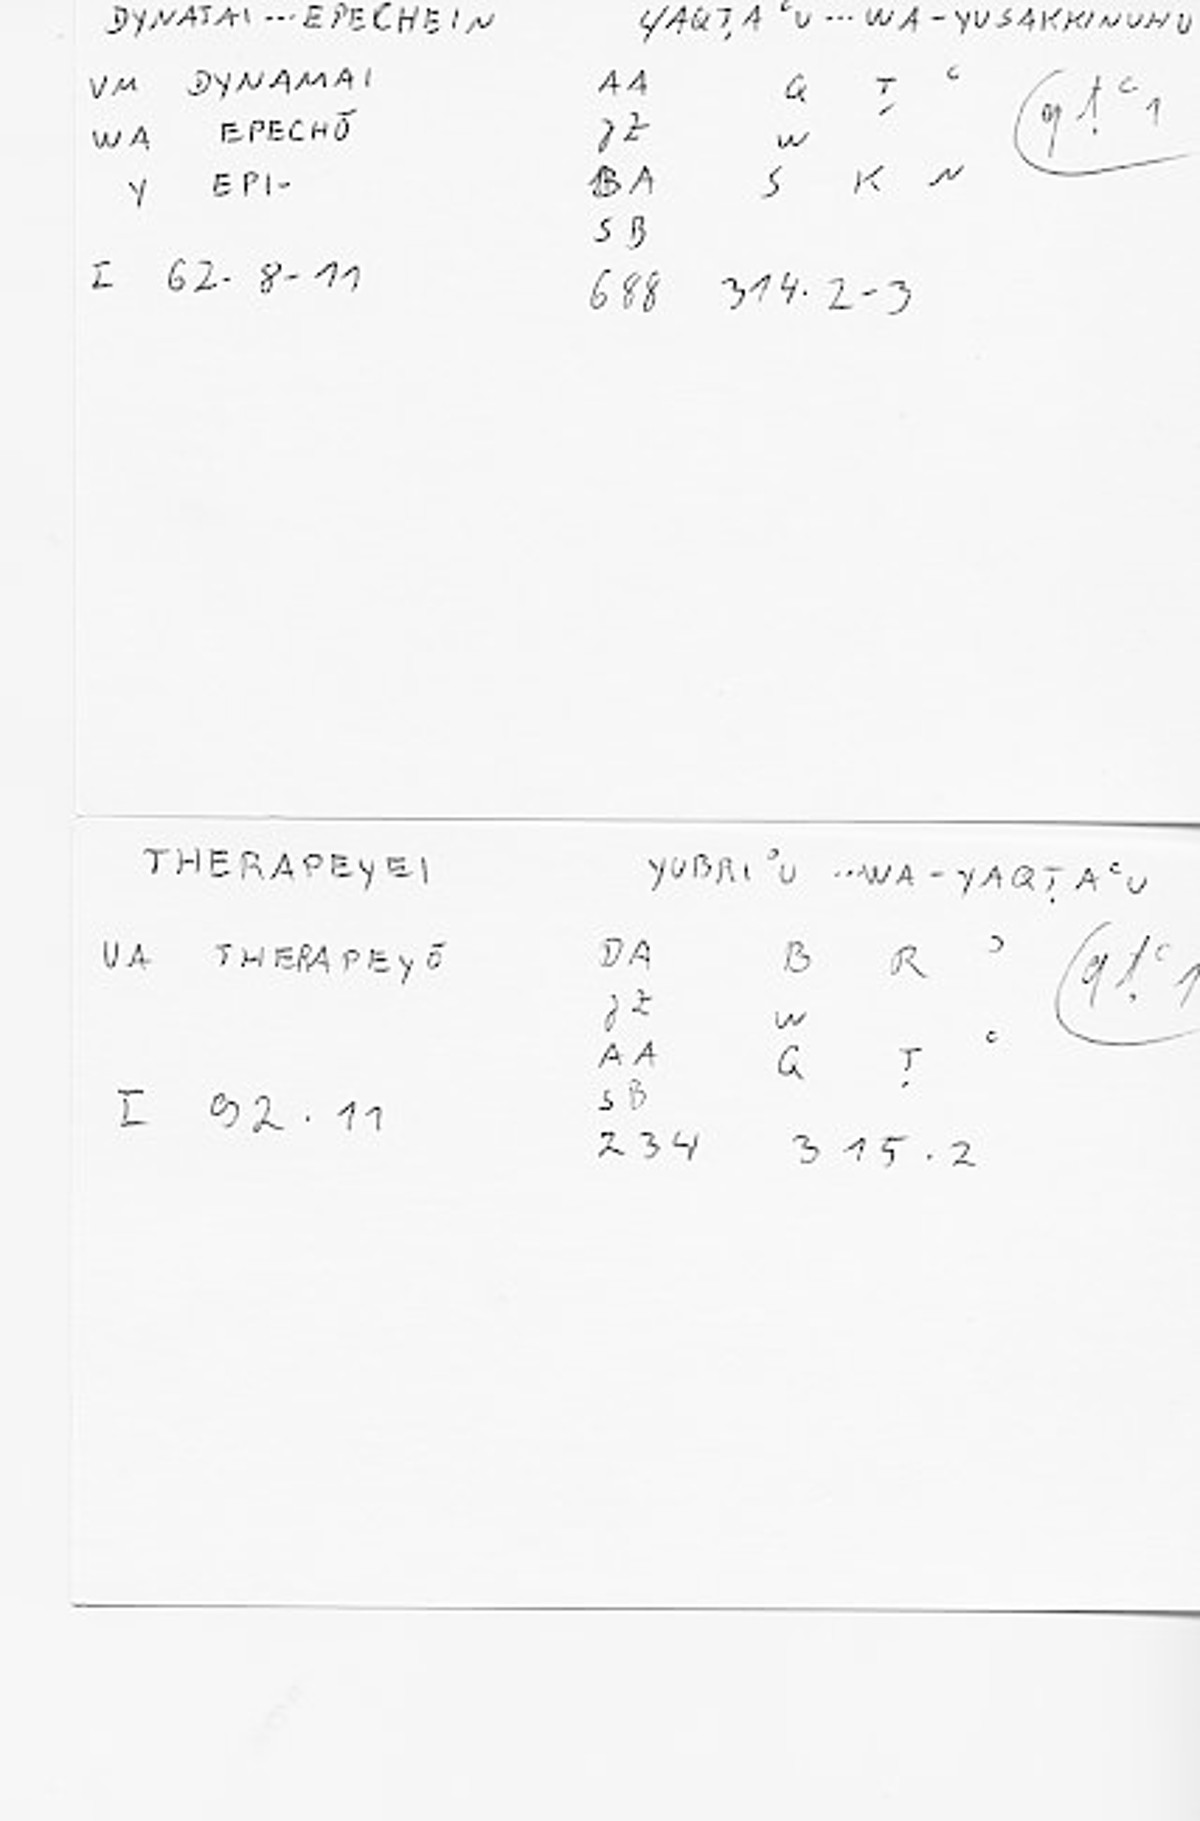 DYNATAI ... EPECHEIN YAQṬAʿU ... WA-YUSAKKINUHU
VM DYNAMAI AA Q Ṭ ʿ qṭʿ1
WA EPECHŌ JZ W
Y EPI- BA S K N
SB
I 62.8-11 688 314.2-3
THERAPEYEI YUBRIʾU ...WA-YAQṬAʿU
VA THERAPEYŌ DA B R ʾ qṭʿ1
JZ W
AA Q Ṭ ʿ
SB
I 92.11 234 315.2